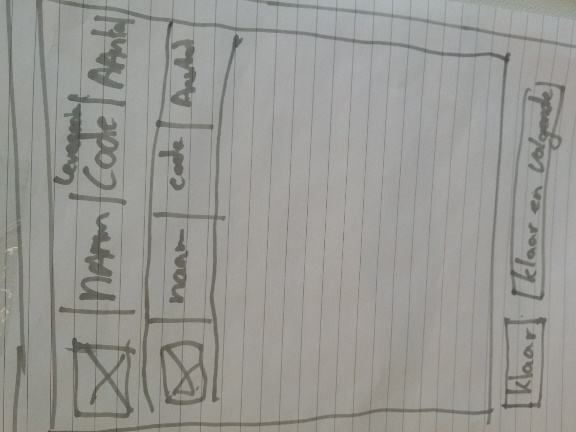 Naam | Code | Aantal
naam | code | Aantal
Klaar
Klaar en volgende